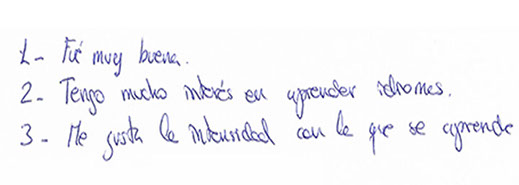 1- Fué muy buena.
2- Tengo mucho interés en aprender idiomas.
3- Me gusta la intensidad con la que se aprende